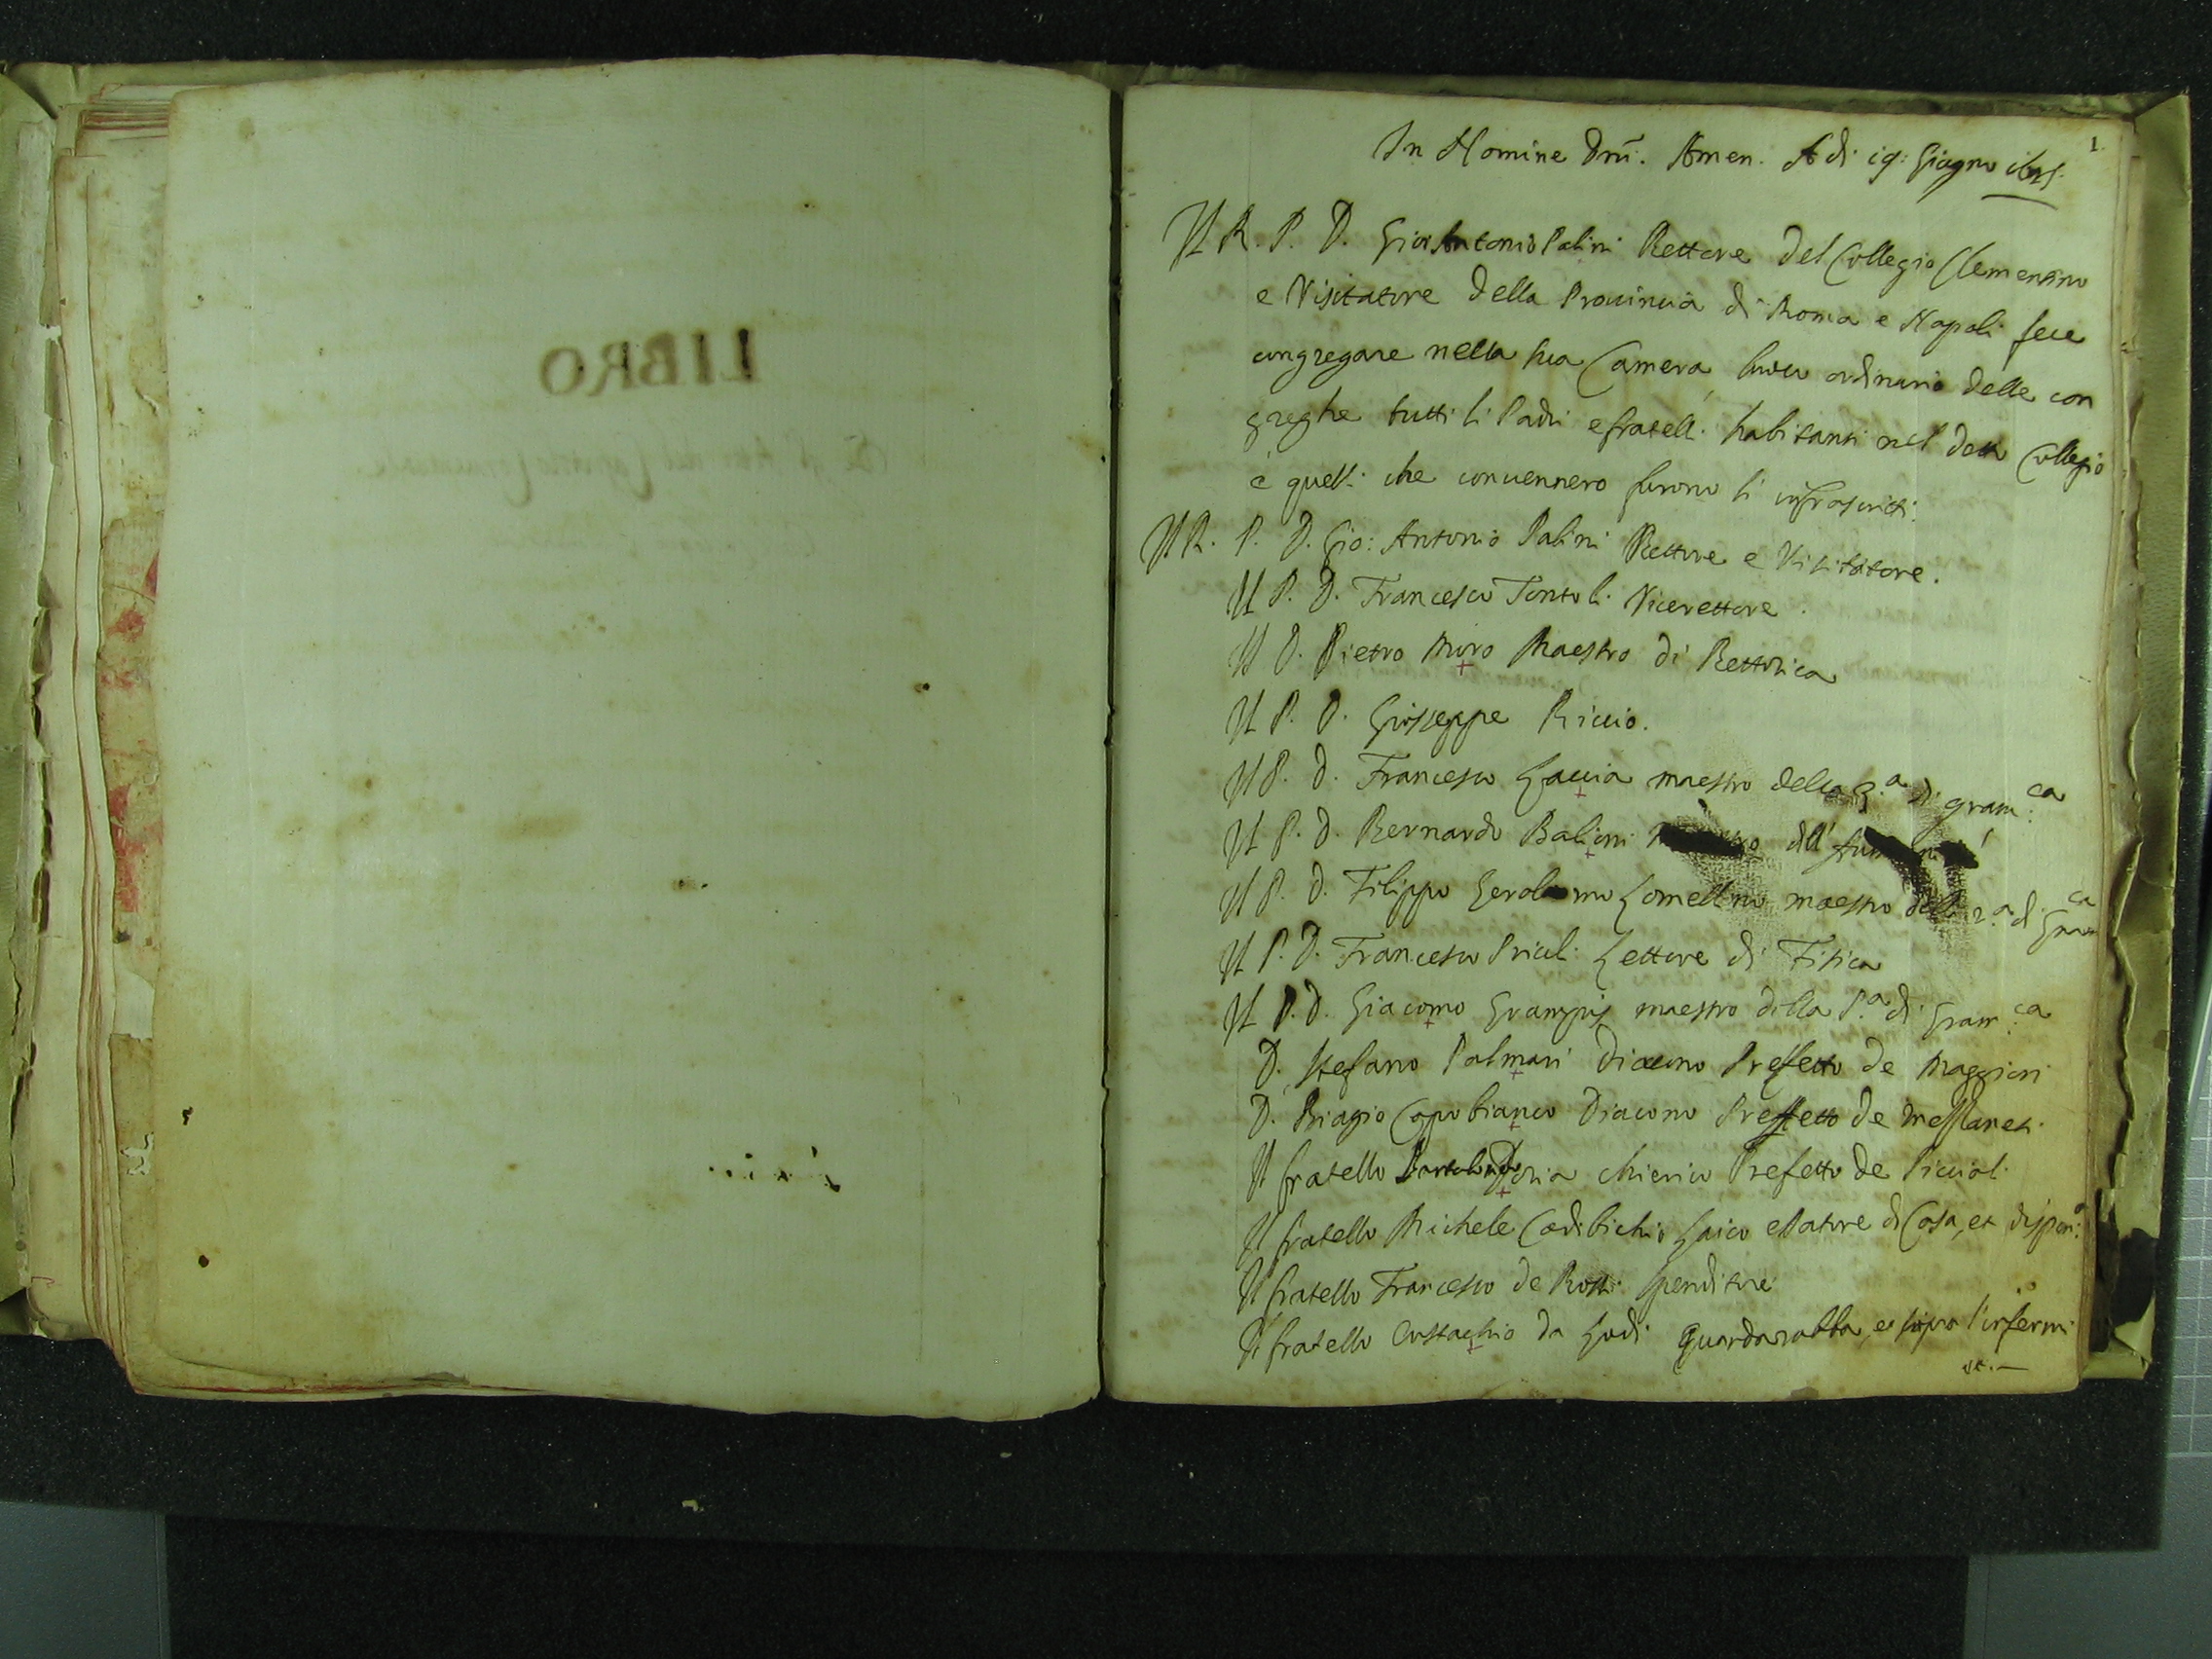 LIBRO
1
In Nomine Dnī. Amen. A di 19: Giugno
Il R. P. D. Gio: Antonio Palini Rettore del Collegio Clementino
e Visitatore della Provincia di Roma e Napoli fece
congregare nella sua Camera luoco ordinario delle con
greghe tutti li Padri e fratelli habitanti nel detto Collegio
e quelli che convennero furono li infrascritti.
Il R. P. D. Gio: Antonio Palini Rettore e Visitatore.
Il P. D. Francesco Tontoli Vicerettore.
Il D. Pietro Moro Maestro di Rettorica
Il P. D. Gioseppe Riccio.
Il P. D. Francesco Laccia maestro della 3.a di gram:ca
Il P. D. Bernardo dell'
Il P. D. Filippo Gerolamo Lomellino maestro della 2.a di Gram ca
Il P. D. Francesco Priuli Lettore di Fisica
Il P. D. Giacomo Grampis maestro della P.a di Gram:ca
D. Stefano Palmari Diacono Prefetto de Maggiori
D. Biagio Capobianco Diacono Prefetto de Mezzanetti
Il fratello Doria Chierico Prefetto de Piccioli
Il fratello Michele Laico di Casa, et dispen:o
Il fratello Francesco de Rossi spenditore
Il fratello Eustachio da Lodi Guardarobba, et sopra l'infermi
etc.